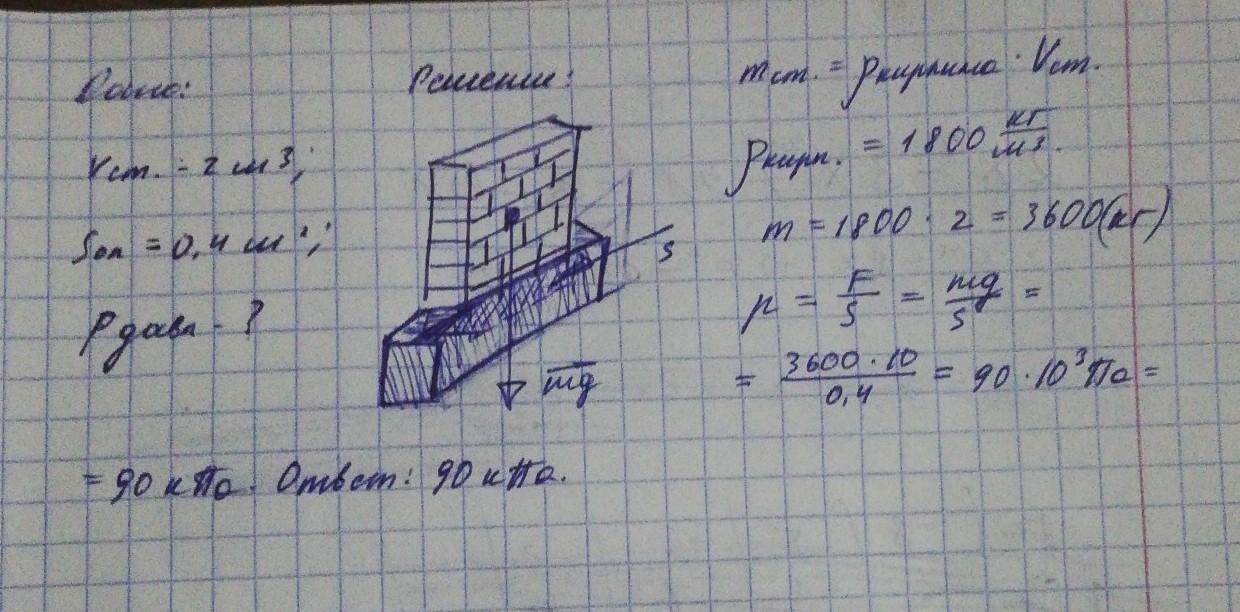 Дано:
Vст. = 2 м3;
Sоп = 0,4 м²;
Pдавл - ?
Решение:
S
mg
mст. = ρкирпича · Vст.
ρкирп. = 1800 кг/м3.
m = 1800 · 2 = 3600(кг)
p = F/S = mg/S =
= 3600 · 10/0,4 = 90 · 10³ Па =
= 90 кПа. Ответ: 90 кПа.